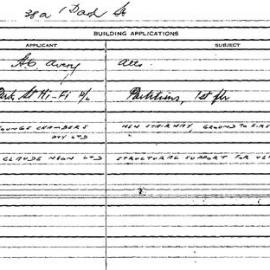 38a Park St
BUILDING APPLICATIONS
APPLICANT SUBJECT
Avery alts
Park St Hi-Fi P/L Partitions, 1st flr
LOUNGE CHAMBERS NEW STAIRWAY, GROUND TO FIRS
PTY LTD
CLAUDE NEON LTD STRUCTURAL SUPPORT FOR